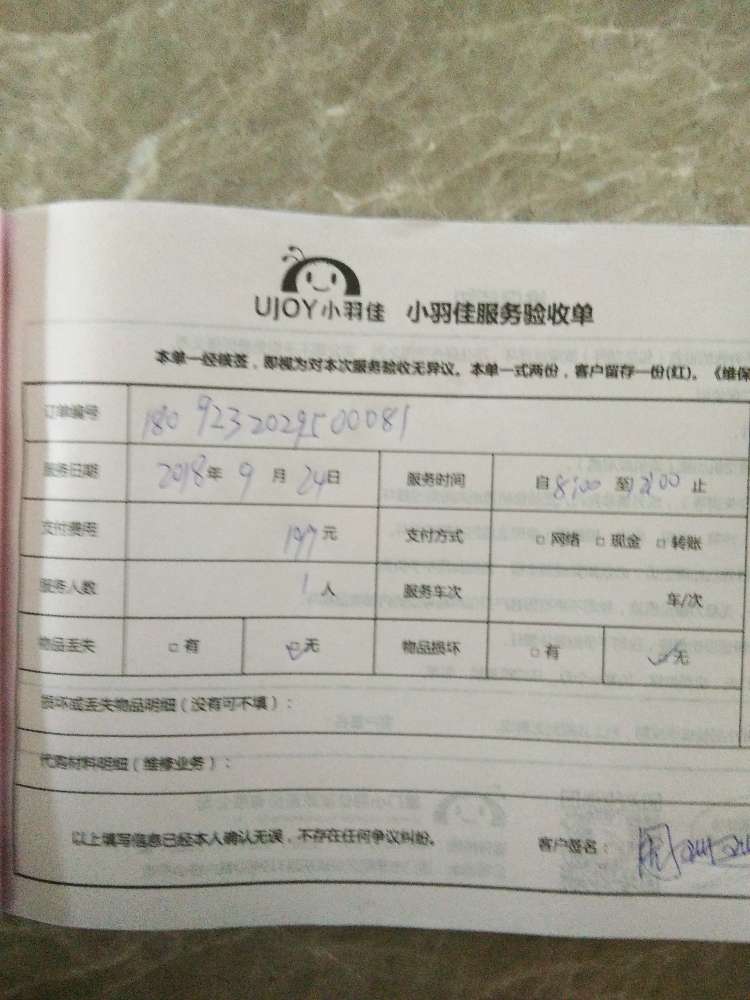 UJOY小羽佳 小羽佳服务验收单
本单一经核签，即视为对本次服务验收无异议。本单一式两份，客户留存一份(红)。《维保
订单编号 180923202950081
服务日期 2018年9月24日 服务时间 自8:00至12:00止
支付费用 197元 支付方式 □网络 □现金 □转账
服务人数 1人 服务车次 车/次
物品丢失 □有 □无 物品损坏 □有 □无
损坏或丢失物品明细（没有可不填）：
代购材料明细（维修业务）：
以上填写信息已经本人确认无误，不存在任何争议纠纷。 客户签名：